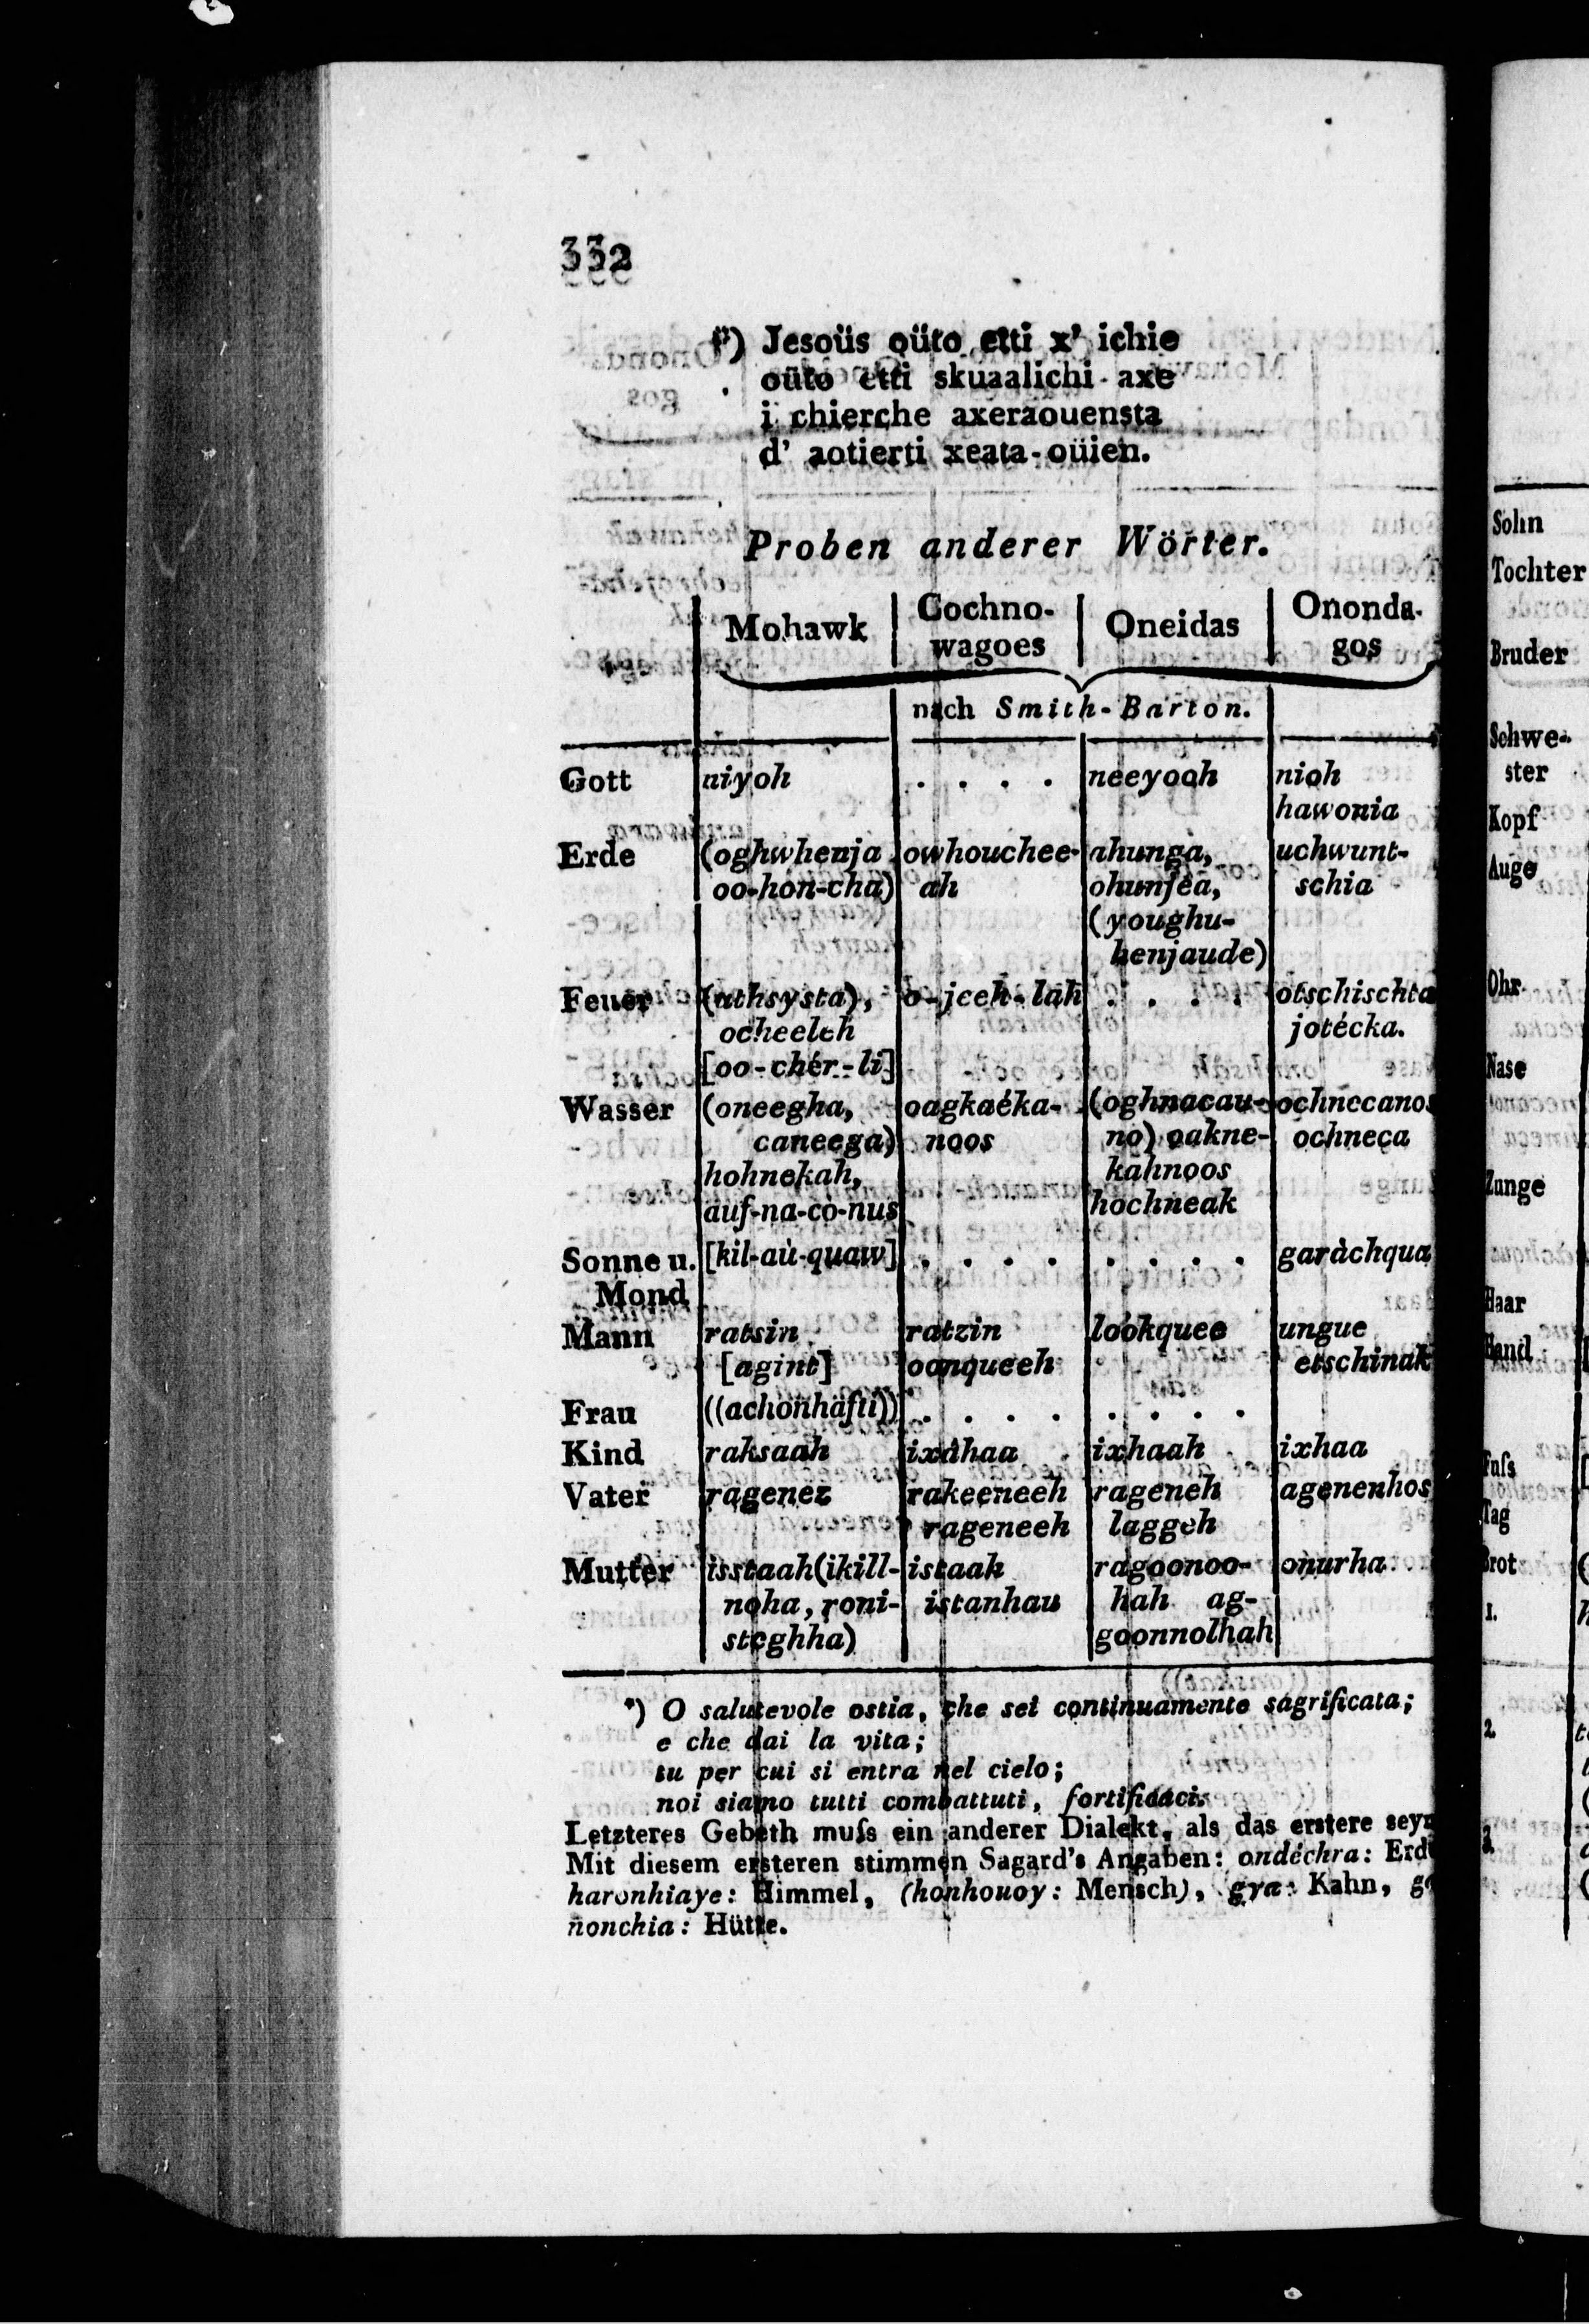 332
*) Jesoüs oüto etti x' ichie
oüto etti skuaalichi-axe
i chierche axeraouensta
d' aotierti xeata-oüien.
Proben anderer Wörter.
Mohawk | Cochno- | Oneidas | Ononda-
wagoes | gos
nach Smith-Barton.
Gott | niyoh | . . . . | neeyooh | nioh
hawonia
Erde | (oghwhenja | owhouchee- | ahunga, | uchwunt-
oo-hon-cha) | ah | ohunjea, | schia
(youghu-
henjaude)
Feuer | (uthsysta), | o-jeeh-lah | . . . . | otschischta
ocheeleh | jotécka.
[oo-chér-li]
Wasser | (oneegha, | oagkaéka- | (oghnacau- | ochnecanos
caneega) | noos | no) oakne- | ochneca
hohnekah, | kahnoos
auf-na-co-nus | hochneak
Sonne u. | [kil-aù-quaw] | . . . . | . . . . | garàchqua
Mond
Mann | ratsin | ratzin | lookquee | ungue
[agint] | oonqueeh | etschinak
Frau | ((achonhäftii)) | . . . . | . . . .
Kind | raksaah | ixàhaa | ixhaah | ixhaa
Vater | ragenez | rakeeneeh | rageneh | agenenhos
rageneeh | laggeh
Mutter | isstaah(ikill- | istaah | ragoonoo- | onurha
noha, roni- | istanhau | hah ag-
steghha) | goonnolhah
*) O salutevole ostia, che sei continuamente sagrificata;
e che dai la vita;
tu per cui si entra nel cielo;
noi siamo tutti combattuti, fortificaci.
Letzteres Gebeth muſs ein anderer Dialekt, als das erstere seyn
Mit diesem ersteren stimmen Sagard's Angaben: ondéchra: Erd
haronhiaye: Himmel, (honhouoy: Mensch), gya: Kahn, g
nonchia: Hütte.
Sohn
Tochter
Bruder
Schwe-
ster
Kopf
Auge
Ohr
Nase
Zunge
Haar
Hand
Fuſs
Tag
Brot
1.
2.
3.